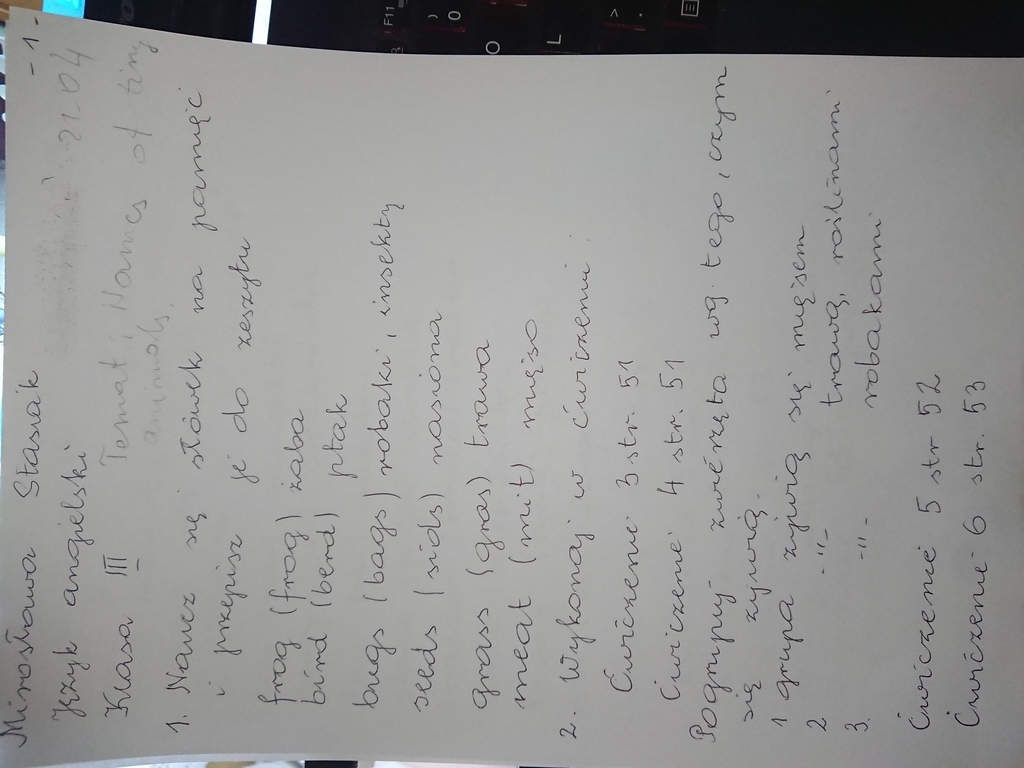 Mirosława Stasiak - 1
Język angielski 21.04
Klasa III Temat: Names of tiny
animals.
1. Naucz się słówek na pamięć
i przepisz je do zeszytu
frog (frog) żaba
bird (berd) ptak
bugs (bags) robaki, insekty
seeds (sids) nasiona
grass (gras) trawa
meat (mit) mięso
2. Wykonaj w ćwiczeniu:
Ćwiczenie 3 str. 51
Ćwiczenie 4 str. 51
Pogrupuj zwierzęta wg. tego, czym
się żywią.
1 grupa żywią się mięsem
2 -"- trawą, roślinami
3. -"- robakami
Ćwiczenie 5 str 52
Ćwiczenie 6 str. 53
F11
)
0
O
L
>
.